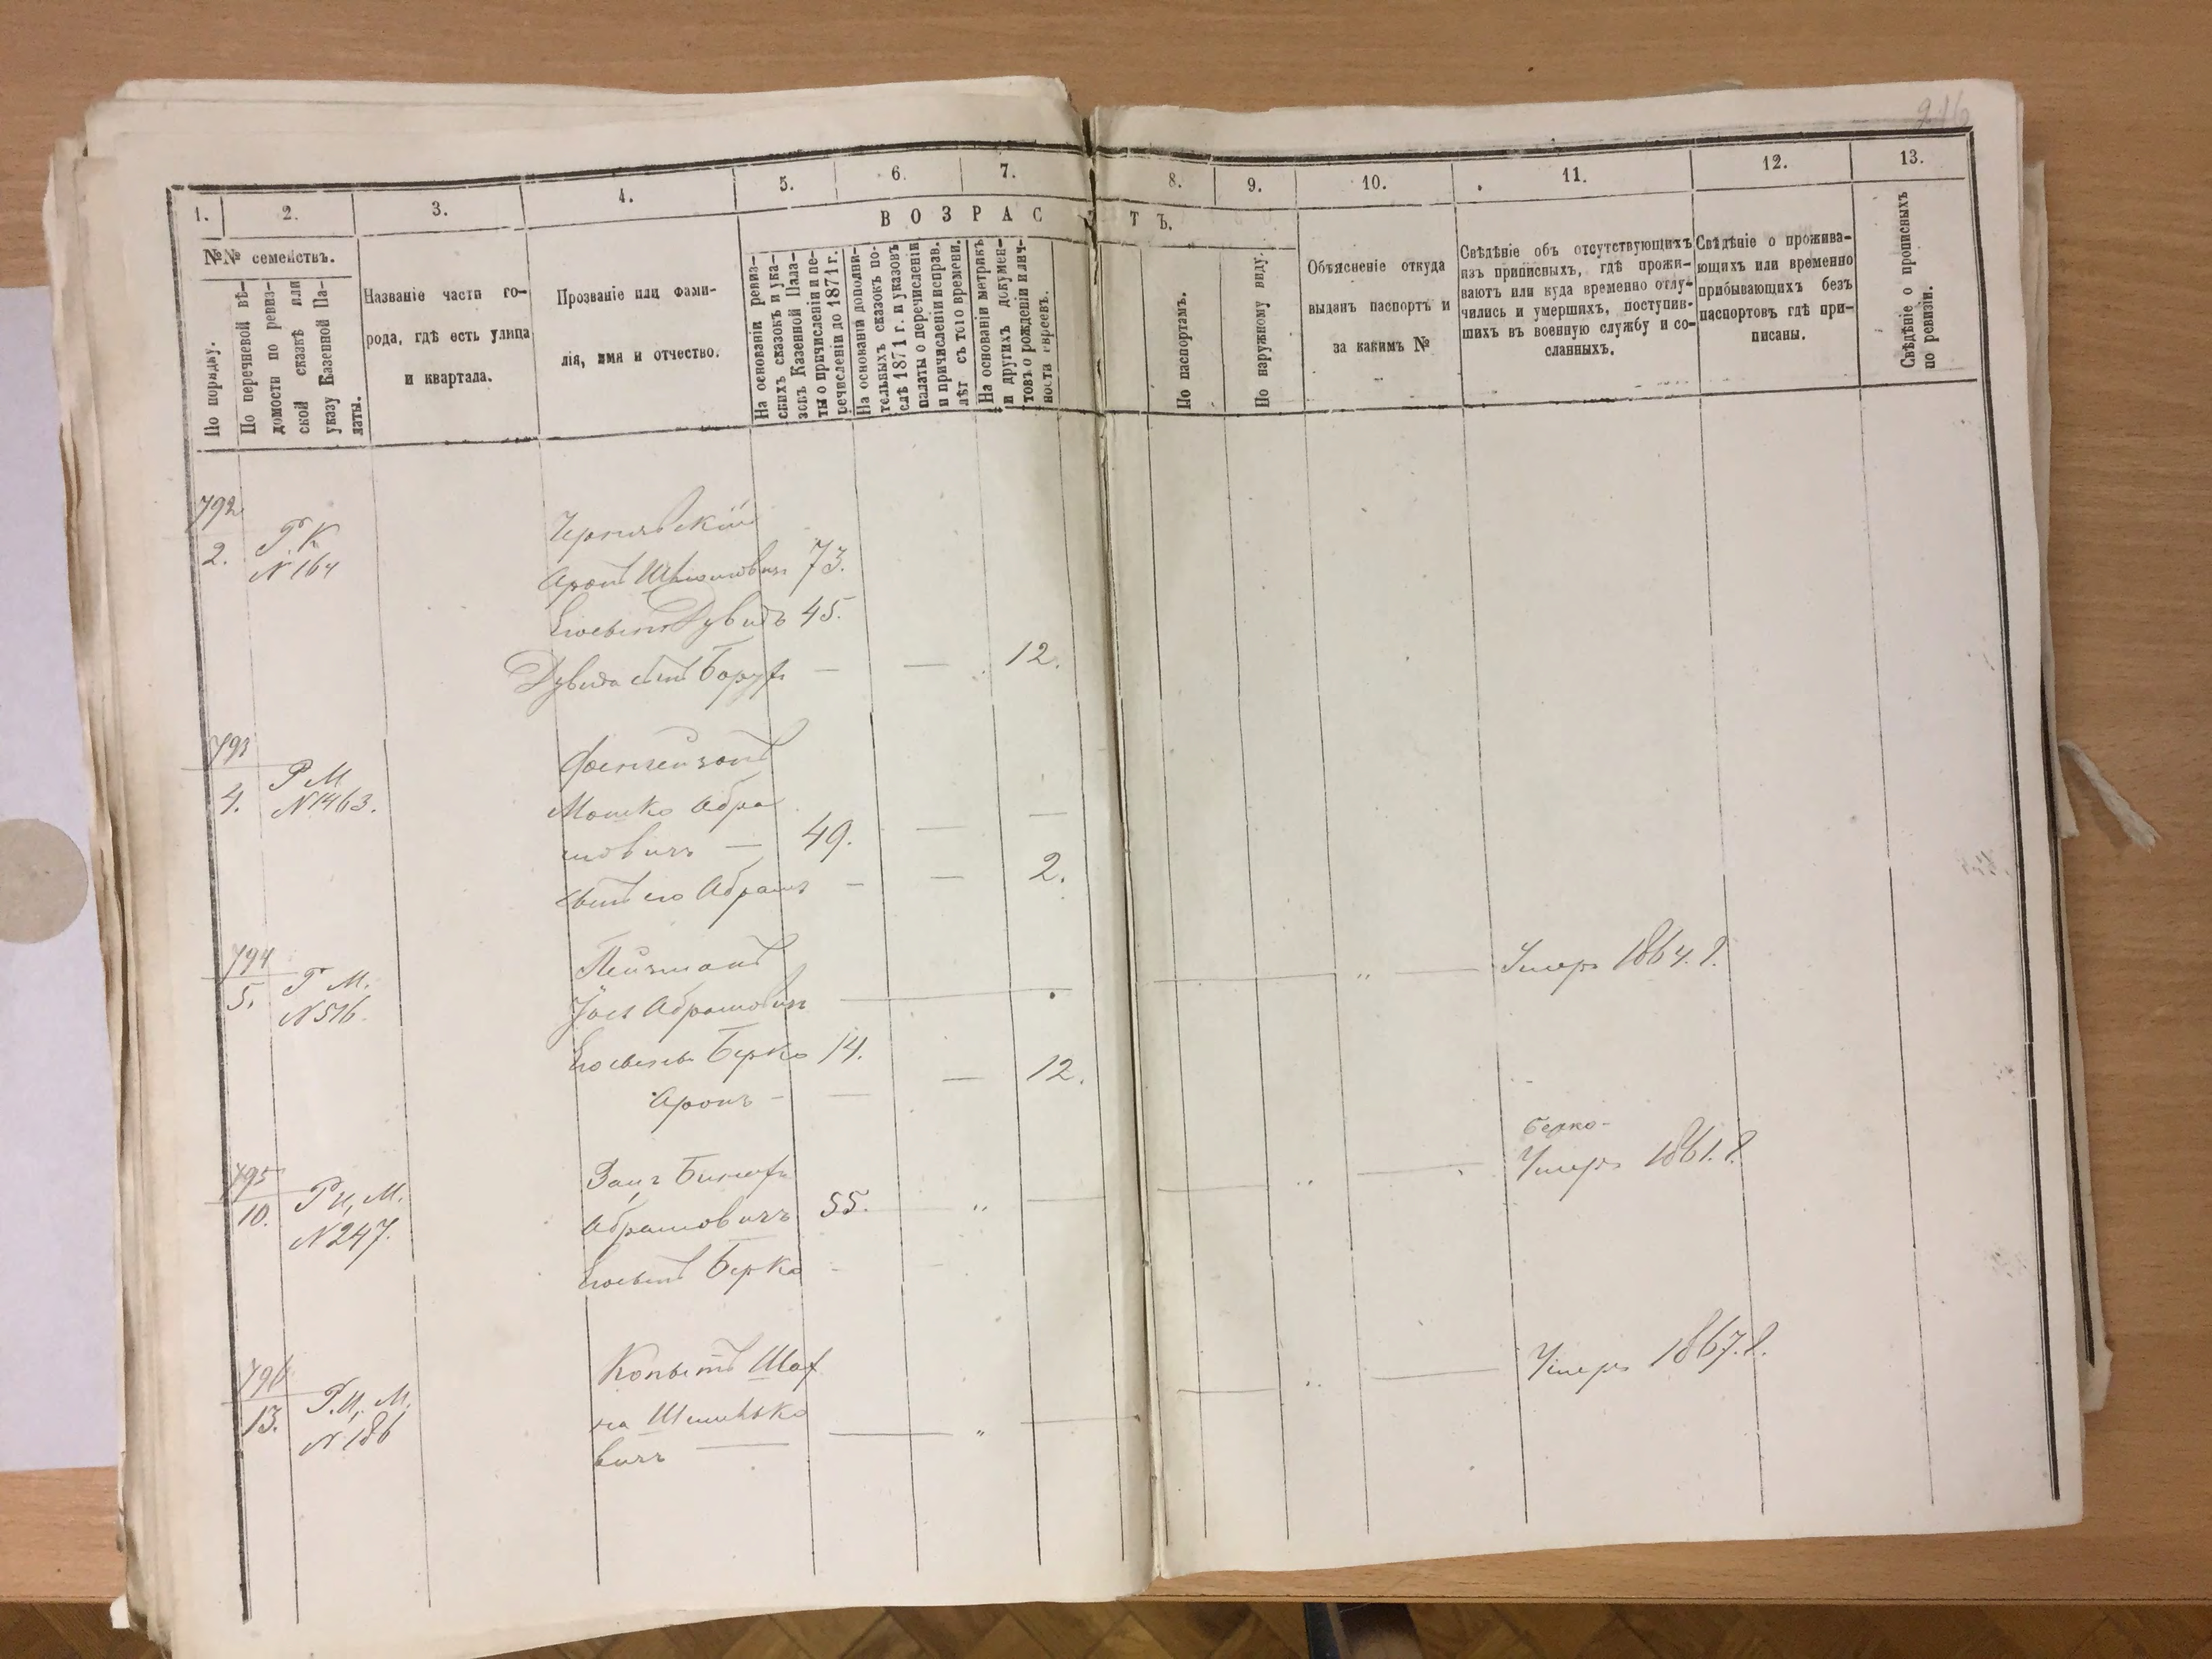 246
1. 2. 3. 4. 5. 6. 7. 8. 9. 10. 11. 12. 13.
ВОЗРАСТЪ.
№№ семействъ.
По порядку.
По перечневой вѣ-
домости по ревиз-
ской сказкѣ или
указу Казенной Па-
латы.
Названіе части го-
рода, гдѣ есть улица
и квартала.
Прозваніе или фами-
лія, имя и отчество.
На основаніи ревиз-
скихъ сказокъ и ука-
зовъ Казенной Пала-
ты о причисленіи и пе-
речисленіи до 1871 г.
На основаніи дополни-
тельныхъ сказокъ по-
слѣ 1871 г. и указовъ
палаты о перечисленіи
и причисленіи исправ.
лѣт съ того времени.
На основаніи метрикъ
и другихъ докумен-
товъ о рожденіи и лич-
ности евреевъ.
По паспортамъ.
По наружному виду.
Объясненіе откуда
выданъ паспортъ и
за какимъ №
Свѣдѣніе объ отсутствующихъ
изъ приписныхъ, гдѣ прожи-
ваютъ или куда временно отлу-
чились и умершихъ, поступив-
шихъ въ военную службу и со-
сланныхъ.
Свѣдѣніе о прожива-
ющихъ или временно
прибывающихъ безъ
паспортовъ гдѣ при-
писаны.
Свѣдѣніе о прописныхъ
по ревизіи.
792
2. Р. К Чернявскій
N 164 Аронъ 73.
Его сынъ Дувидъ 45.
Дувида сынъ Борух — — 12.
793
4. Р М
N 1463. Мошко Абра
мовичъ — 49. — —
сынъ его Абрамъ — — 2.
794
5. Р М. Лейзманъ
N 516. Абрамовичъ — „ — Умеръ 1864. г.
Его сынъ Берко 14.
Аронъ — — — 12.
795
10. Р И, М.
N 247. Абрамовичъ 55. „ —
Его сынъ Берко - Берко-
„ — Умеръ 1861. г.
796
13. Р. И, М. Копытъ Шах
N 186 на
вичъ — — „ — — „ — Умеръ 1867. г.